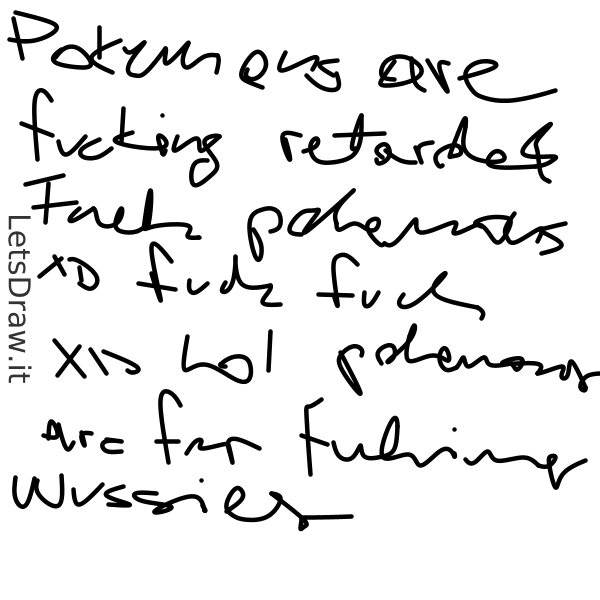 Pokemons are
fucking retarded
Fuck pokemons
XD fuck fuck
XD lol pokemons
are for fucking
wussies
LetsDraw.it